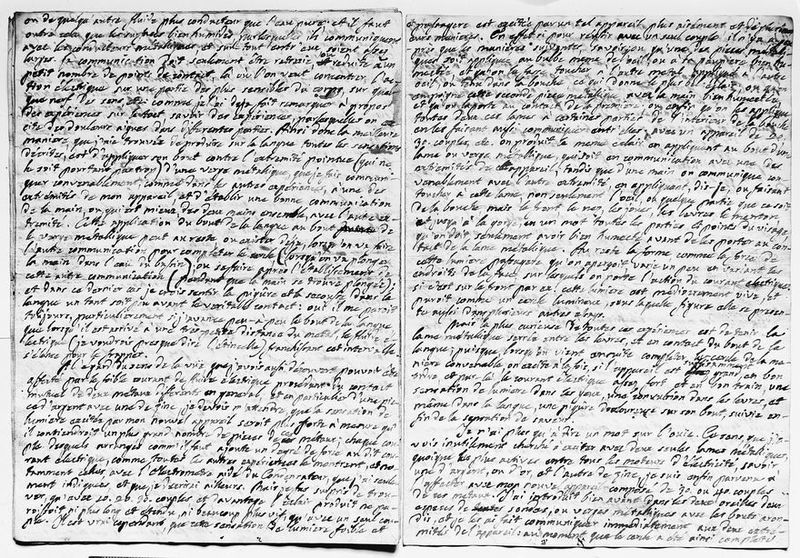 on de quelque autre fluide plus conducteur que l'eau pure; et il faut
outre cela que les surfaces bien humides par lesquelles ils communiquent
avec les conducteurs metalliques et sur tout entr'eux soient assez
larges. La communication doit seulement être retrecie, et reduite à un
petit nombre de points de contact, là où l'on veut concentrer l'ac-
tion électrique sur une partie des plus sensibles du corps, sur quel-
que nerf des sens, &c: comme je l'ai deja fait remarquer à propos
des expériences sur le tact, savoir des expériences par lesquelles on ex-
cite des douleurs aigues dans differentes parties. Ainsi donc la meilleure
maniere que j'aie trouvée de produire sur la langue toutes les sensations
décrites, est d'appliquer son bout contre l'extremité pointue (qui ne
le soit pourtant pas trop) d'une verge metallique, que je fais communi-
quer convenablement, comme dans les autres expériences, à une des
extrémités de mon appareil, et d'établir une bonne communication
de la main, ou, qui est mieux, des deux mains ensemble, avec l'autre ex-
tremité. Cette application du bout de la langue au bout de
la verge metallique peut au reste ou exister déja, lorsqu'on va faire
l'autre communication pour completer le cercle (lorsqu'on va plonger
la main dans l'eau du bassin) ou se faire après l'établissement de
cette autre communication (pendant que la main se trouve plongée);
et dans ce dernier cas je crois sentir la piqure et la secousse dans la
langue un tant soit peu avant le veritable contact: oui il me paroit
toujours, particulierement si j'avance peu à peu le bout de la langue,
que lorsqu'il est arrivé à une très petite distance du metal, le fluide é-
lectrique (je voudrois presque dire l'étincelle) franchissant cet intervalle
s'élance pour le frapper.
A l'égard du sens de la vue que j'avois aussi découvert pouvoit être
affecté par le foible courant de fluide électrique provenant du contact
mutuel de deux metaux differents en general, et en particulier d'une pie-
ce d'argent avec une de zinc, je devois m'attendre, que la sensation de
lumiere excitée par mon nouvel appareil seroit plus forte à mesure qu'
il contiendroit un plus grand nombre de pieces de ces metaux; chaque cou-
ple desquels arrangés comme il faut ajoute un degré de force au dit cou-
rant électrique, comme toutes les autres expériences le montrent, et no-
tamment celles avec l'électrometre aidé du Condensateur, que j'ai seule-
ment indiquées, et que je décrirai ailleurs. Mais je fus surpris de trou-
ver qu'avec 10. 20. 30. couples et davantage l'éclair produit ne pa-
roissoit ni plus long et étendu, ni beaucoup plus vif, qu'avec un seul cou-
ple. Il est vrai cependant, que cette sensation de lumiere foible et
passagere est excitée par un tel appareil plus aisément et de plusi-
eurs manieres. En effet si pour réussir avec un seul couple il n'y a à peu
près que les manieres suivantes, savoir qu'une des pieces metalli-
ques soit appliquée au bulbe meme de l'oeil, ou à la paupiere bien hu-
mectée, et qu'on la fasse toucher à l'autre metal appliqué à l'autre
oeil, ou tenu dans la bouche, ce qui donne le plus bel éclair; ou qu'on
empoigne cette seconde piece metallique avec la main bien humectée,
et qu'on la porte au contact de la premiere; ou enfin qu'on applique
toutes deux ces lames à certaines parties de l'interieur de la bouche
en les faisant aussi communiquer entr'elles; avec un appareil de 20.
30. couples, etc. on produit le meme éclair en appliquant au bout d'une
lame ou verge metallique, qui soit en communication avec une des
extrémités de l'appareil, tandis que d'une main on communique con-
venablement avec l'autre extremité, en appliquant, dis-je, ou faisant
toucher à cette lame, non seulement l'oeil, ou quelque partie que ce soit
de la bouche, mais le front, le nez, les joues, les levres, le menton,
et jusqu'à la gorge; en un mot toutes les parties et points du visage,
qu'on doit seulement avoir bien humectés avant de les porter au con-
tact de la lame metallique. Au reste la forme comme la force de
cette lumiere passagere qu'on aperçoit varie un peu en variant les
endroits de la face sur lesquels on porte l'action du courant électrique:
si c'est sur le front par ex: cette lumiere est mediocrement vive, et
paroit comme un cercle lumineux, sous laquelle figure elle se presen-
te aussi dans plusieurs autres essays.
Mais la plus curieuse de toutes ces expériences est de tenir la
lame metallique serrée entre les levres, et en contact du bout de la
langue; puisque, lorsqu'on vient ensuite completer le cercle de la ma-
niere convenable on excite à la fois, si l'appareil est suffisamment grand et en bon
ordre, et par là le courant électrique assez fort et en bon train, une
sensation de lumiere dans les yeux, une convulsion dans les levres, et
même dans la langue, une piqure douloureuse sur son bout, suivie en-
fin de la sensation de saveur.
Je n'ai plus qu'à dire un mot sur l'ouie. Ce sens que j'a-
vois inutilement cherché à exciter avec deux seules lames metalliques,
quoique les plus actives entre tous les moteurs d'électricité, savoir
une d'argent, ou d'or, et l'autre de zinc, je suis enfin parvenu à
l'affecter avec mon nouvel appareil, composé de 30. ou 40. couples
de ces metaux. J'ai introduit bien avant dans les deux oreilles deux
especes de sondes, ou verges metalliques avec les bouts arron-
dis; et je les ai fait communiquer immediatement aux deux extré-
mités de l'appareil. Au moment que le cercle a été ainsi completté